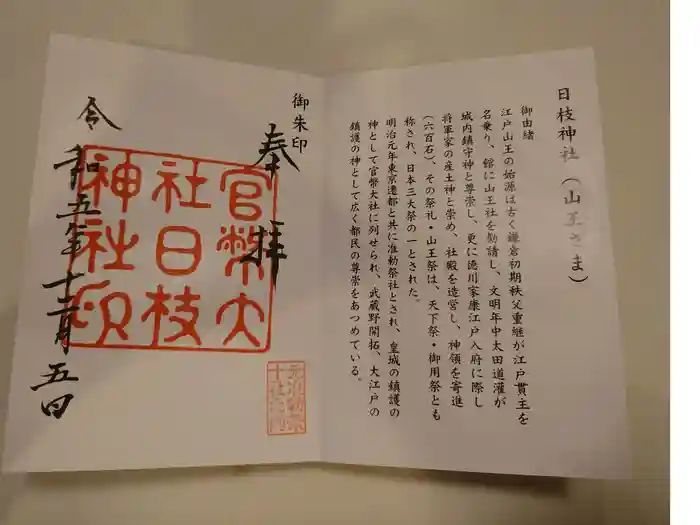 日枝神社(山王さま)
御由緒
江戸山王の始源は古く鎌倉初期秩父重継が江戸貫主を
名乗り、館に山王社を勧請し、文明年中太田道灌が
城内鎮守神と尊崇し、更に徳川家康江戸入府に際し
将軍家の産土神と崇め、社殿を造営し、神領を寄進
(六百石)、その祭礼・山王祭は、天下祭・御用祭とも
称され、日本三大祭の一とされた。
明治元年東京遷都と共に准勅祭社とされ、皇城の鎮護の
神として官幣大社に列せられ、武蔵野開拓、大江戸の
鎮護の神として広く都民の尊崇をあつめている。
御朱印
奉拝
官幣大
社日枝
神社印
令和五年十二月五日